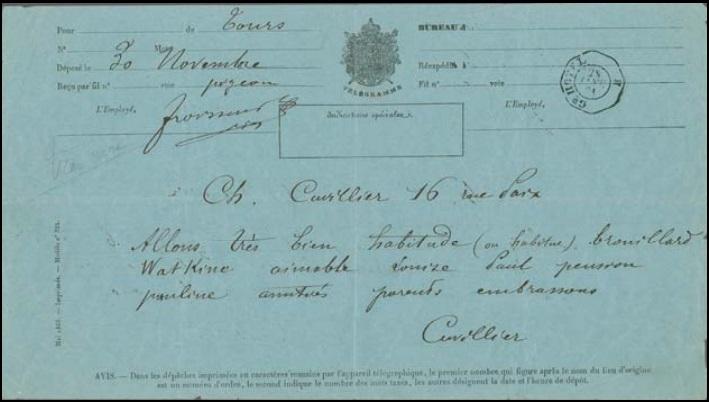 Pour de Tours
N° Mots
Déposé le 30 Novembre
Reçu par fil n° voie pigeon
L'Employé,
TÉLÉGRAMME
Indications spéciales.
BUREAU d
Réexpédié à
Fil n° voie
L'Employé,
Gd HOTEL
Ch. Cuvillier 16 rue Paix
Allons très bien habitude (ou habitue) brouillard
Watkine aimable Louize Paul pension
pauline amitiés parents embrassons
Cuvillier
AVIS. — Dans les dépêches imprimées en caractères romains par l'appareil télégraphique, le premier nombre qui figure après le nom du lieu d'origine
est un numéro d'ordre, le second indique le nombre des mots taxés, les autres désignent la date et l'heure de dépôt.